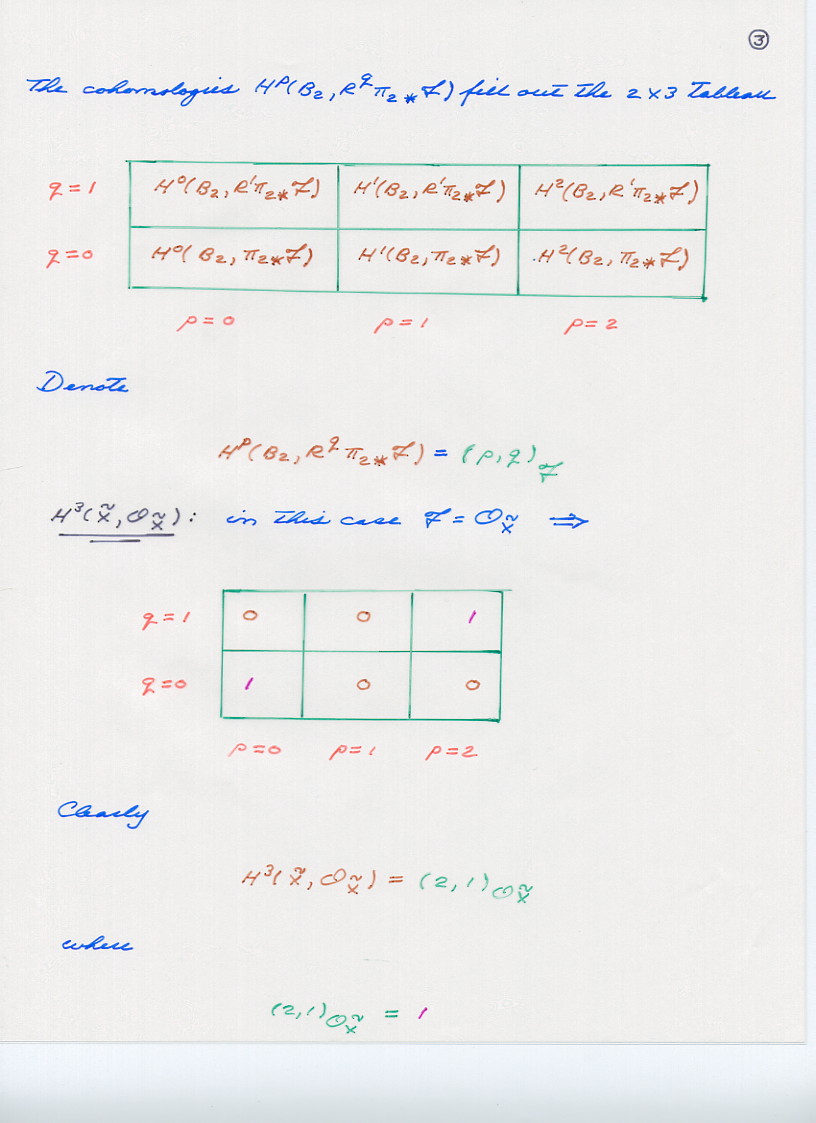 ③
The cohomologies Hᵖ(B₂, R^q π₂* ℱ) fill out the 2×3 tableau
q = 1 H⁰(B₂, R¹π₂*ℱ) H¹(B₂, R¹π₂*ℱ) H²(B₂, R¹π₂*ℱ)
q = 0 H⁰(B₂, π₂*ℱ) H¹(B₂, π₂*ℱ) H²(B₂, π₂*ℱ)
p = 0 p = 1 p = 2
Denote
Hᵖ(B₂, R^q π₂* ℱ) = (p, q)_ℱ
H³(X̃, 𝒪_X̃): in this case ℱ = 𝒪_X̃ ⟹
q = 1 0 0 1
q = 0 1 0 0
p = 0 p = 1 p = 2
Clearly
H³(X̃, 𝒪_X̃) = (2, 1)_𝒪_X̃
where
(2, 1)_𝒪_X̃ = 1